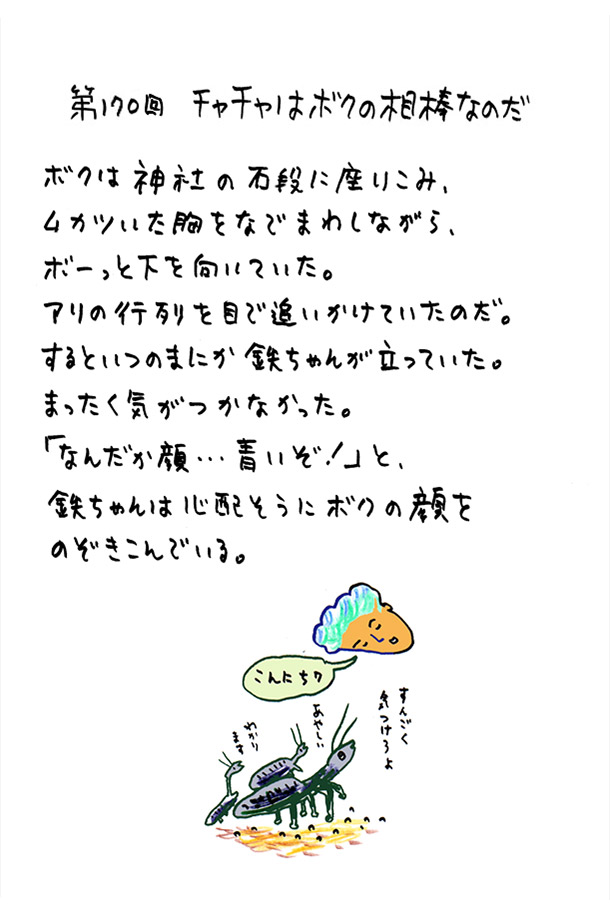 第170回 チャチャはボクの相棒なのだ
ボクは神社の石段に座りこみ、
ムカツいた胸をなでまわしながら、
ボーっと下を向いていた。
アリの行列を目で追いかけていたのだ。
するといつのまにか鉄ちゃんが立っていた。
まったく気がつかなかった。
「なんだか顔…青いぞ！」と、
鉄ちゃんは心配そうにボクの顔を
のぞきこんでいる。
こんにちワ
すんごく
気つけろよ
あやしい
わかり
ます